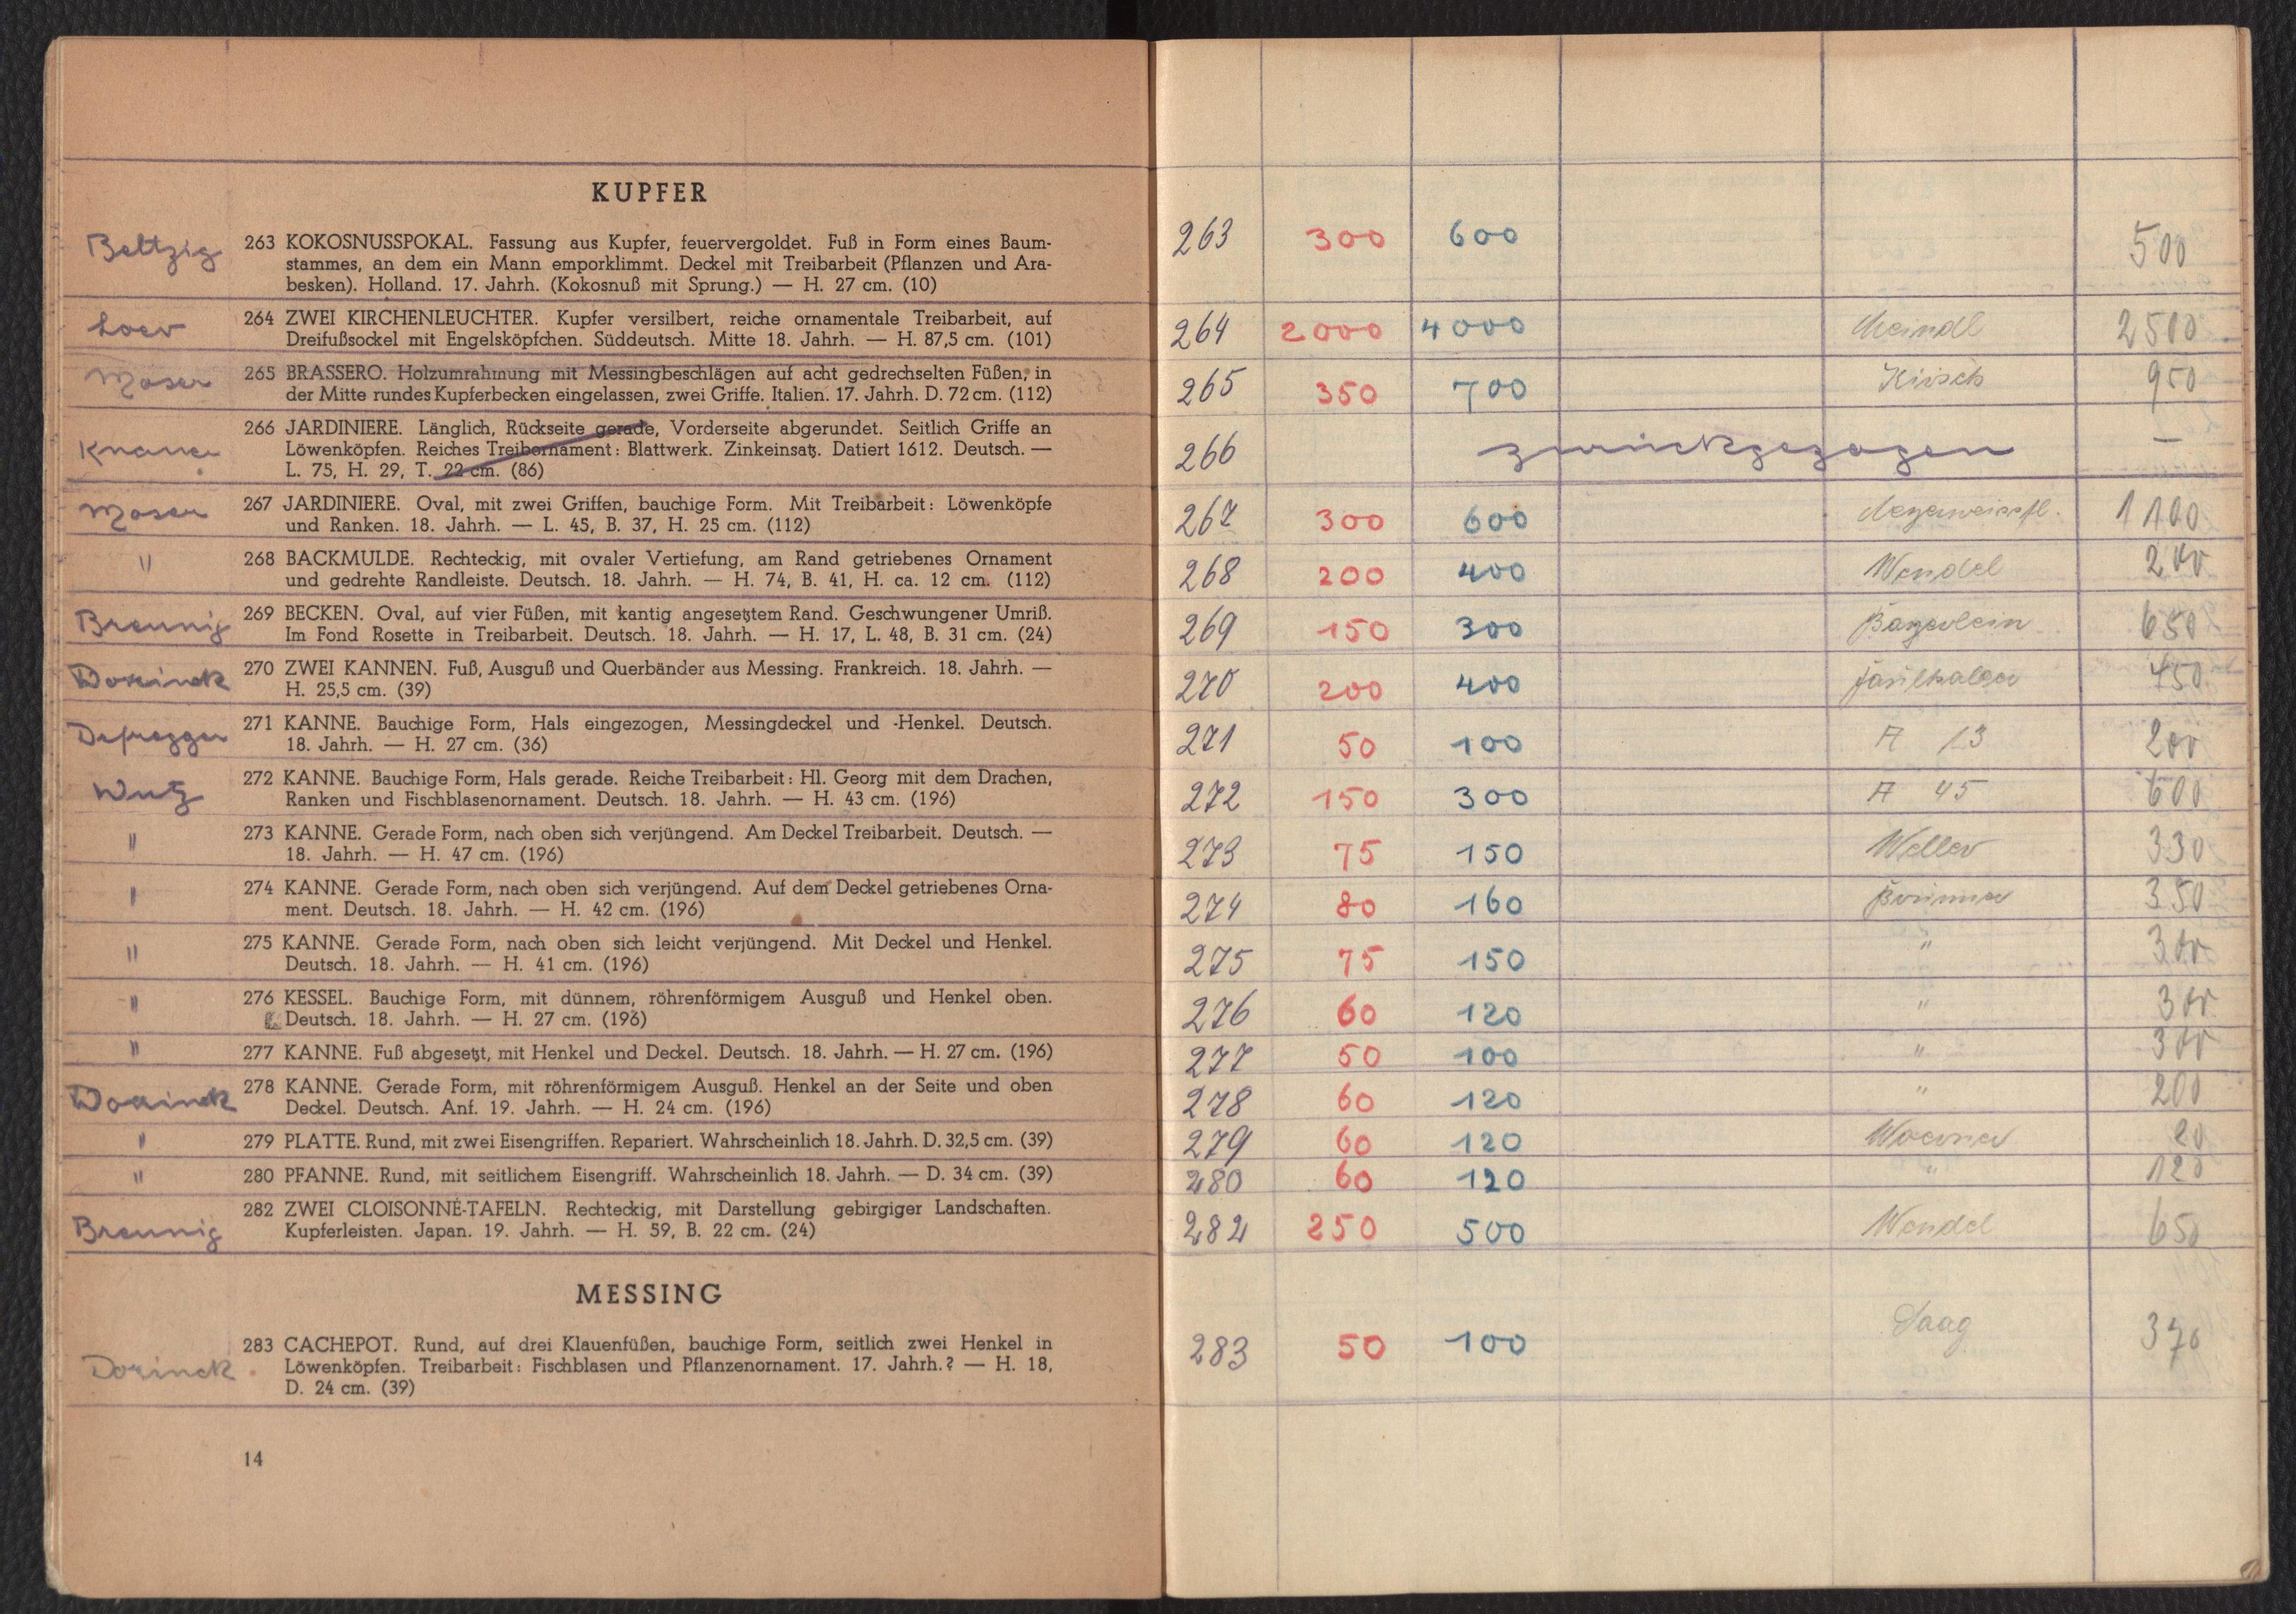 KUPFER
Beltzig
263 KOKOSNUSSPOKAL. Fassung aus Kupfer, feuervergoldet. Fuß in Form eines Baum-
stammes, an dem ein Mann emporklimmt. Deckel mit Treibarbeit (Pflanzen und Ara-
besken). Holland. 17. Jahrh. (Kokosnuß mit Sprung.) — H. 27 cm. (10)
264 ZWEI KIRCHENLEUCHTER. Kupfer versilbert, reiche ornamentale Treibarbeit, auf
Dreifußsockel mit Engelsköpfchen. Süddeutsch. Mitte 18. Jahrh. — H. 87,5 cm. (101)
Moser
265 BRASSERO. Holzumrahmung mit Messingbeschlägen auf acht gedrechselten Füßen, in
der Mitte rundes Kupferbecken eingelassen, zwei Griffe. Italien. 17. Jahrh. D. 72 cm. (112)
266 JARDINIERE. Länglich, Rückseite gerade, Vorderseite abgerundet. Seitlich Griffe an
Löwenköpfen. Reiches Treibornament: Blattwerk. Zinkeinsatz. Datiert 1612. Deutsch. —
L. 75, H. 29, T. 22 cm. (86)
Moser
267 JARDINIERE. Oval, mit zwei Griffen, bauchige Form. Mit Treibarbeit: Löwenköpfe
und Ranken. 18. Jahrh. — L. 45, B. 37, H. 25 cm. (112)
"
268 BACKMULDE. Rechteckig, mit ovaler Vertiefung, am Rand getriebenes Ornament
und gedrehte Randleiste. Deutsch. 18. Jahrh. — H. 74, B. 41, H. ca. 12 cm. (112)
Breunig
269 BECKEN. Oval, auf vier Füßen, mit kantig angesetztem Rand. Geschwungener Umriß.
Im Fond Rosette in Treibarbeit. Deutsch. 18. Jahrh. — H. 17, L. 48, B. 31 cm. (24)
Dorinck
270 ZWEI KANNEN. Fuß, Ausguß und Querbänder aus Messing. Frankreich. 18. Jahrh. —
H. 25,5 cm. (39)
Defregger
271 KANNE. Bauchige Form, Hals eingezogen, Messingdeckel und -Henkel. Deutsch.
18. Jahrh. — H. 27 cm. (36)
Wutz
272 KANNE. Bauchige Form, Hals gerade. Reiche Treibarbeit: Hl. Georg mit dem Drachen,
Ranken und Fischblasenornament. Deutsch. 18. Jahrh. — H. 43 cm. (196)
"
273 KANNE. Gerade Form, nach oben sich verjüngend. Am Deckel Treibarbeit. Deutsch. —
18. Jahrh. — H. 47 cm. (196)
"
274 KANNE. Gerade Form, nach oben sich verjüngend. Auf dem Deckel getriebenes Orna-
ment. Deutsch. 18. Jahrh. — H. 42 cm. (196)
"
275 KANNE. Gerade Form, nach oben sich leicht verjüngend. Mit Deckel und Henkel.
Deutsch. 18. Jahrh. — H. 41 cm. (196)
"
276 KESSEL. Bauchige Form, mit dünnem, röhrenförmigem Ausguß und Henkel oben.
Deutsch. 18. Jahrh. — H. 27 cm. (196)
"
277 KANNE. Fuß abgesetzt, mit Henkel und Deckel. Deutsch. 18. Jahrh. — H. 27 cm. (196)
Dorinck
278 KANNE. Gerade Form, mit röhrenförmigem Ausguß. Henkel an der Seite und oben
Deckel. Deutsch. Anf. 19. Jahrh. — H. 24 cm. (196)
"
279 PLATTE. Rund, mit zwei Eisengriffen. Repariert. Wahrscheinlich 18. Jahrh. D. 32,5 cm. (39)
"
280 PFANNE. Rund, mit seitlichem Eisengriff. Wahrscheinlich 18. Jahrh. — D. 34 cm. (39)
Breunig
282 ZWEI CLOISONNÉ-TAFELN. Rechteckig, mit Darstellung gebirgiger Landschaften.
Kupferleisten. Japan. 19. Jahrh. — H. 59, B. 22 cm. (24)
MESSING
Dorinck
283 CACHEPOT. Rund, auf drei Klauenfüßen, bauchige Form, seitlich zwei Henkel in
Löwenköpfen. Treibarbeit: Fischblasen und Pflanzenornament. 17. Jahrh.? — H. 18,
D. 24 cm. (39)
14
263 300 600 500
264 2000 4000 Meindl 2500
265 350 700 Kirsch 950
266 zurückgezogen —
267 300 600 1100
268 200 400 Wendel 200
269 150 300 650
270 200 400 450
271 50 100 A 13 200
272 150 300 A 45 600
273 75 150 Weller 330
274 80 160 350
275 75 150 " 300
276 60 120 " 300
277 50 100 " 300
278 60 120 " 200
279 60 120 20
280 60 120 " 120
282 250 500 Wendel 650
283 50 100 Saag 370